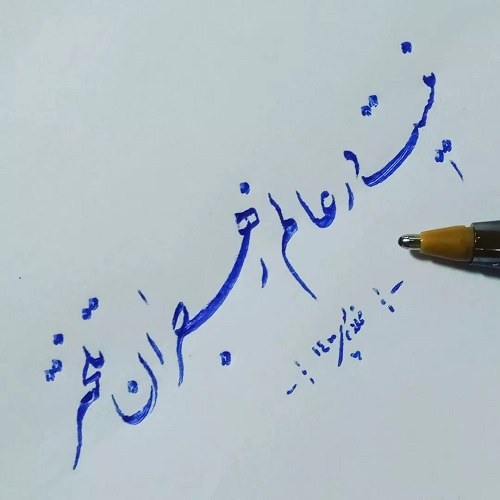 نیست در عالم ز هجران تلختر
۱۴۰۰